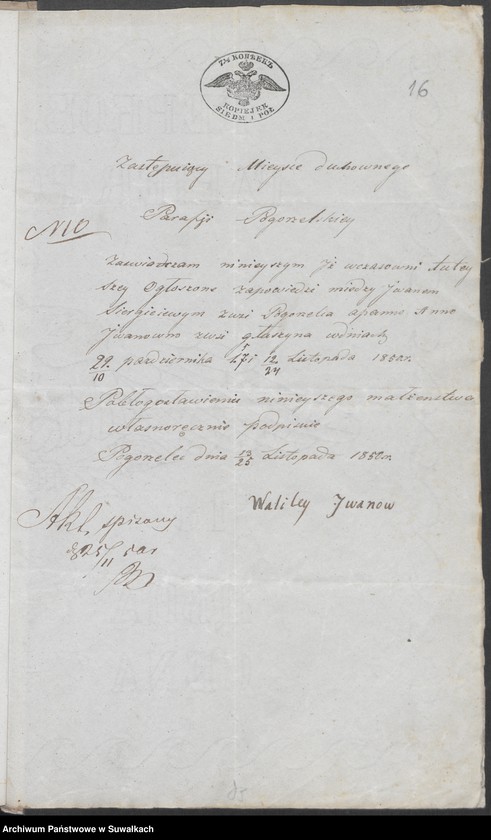 7½ КОПѢЕКЪ
KOPIEJEK
SIEDM I PÓŁ
16
Zastępuiący Mieysce duchownego
Parafji Pogorzelskiey
N10
Zaswiadczam ninieyszym Jż wczasowni Tutey
szey Ogłoszone zapowiedzi między Jwanem
Siergieiewym zwsi Pogorzelca apanno Anno
Jwanowno zwsi głuszyna wdniach
29/10 pazdziernika 5/17 i 12/24 Listopada 1850r.
Pobłogosławieniu ninieyszego małżenstwa
własnoręcznie podpisuie
Pogorzelec dnia 13/25 Listopada 1850r.
Wasiley Jwanow
Akt. spisany
d 25/11 50r
Archiwum Państwowe w Suwałkach